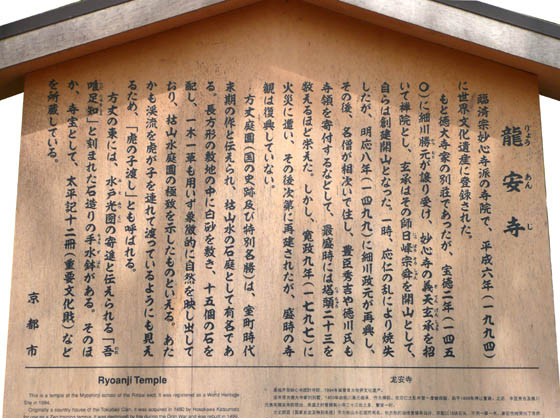 龍安寺
りょうあんじ
臨済宗妙心寺派の寺院で、平成六年（一九九四）
に世界文化遺産に登録された。
もと徳大寺家の別荘であったが、宝徳二年（一四五
〇）に細川勝元が譲り受け、妙心寺の義天玄承を招
いて禅院とし、玄承はその師日峰宗舜を開山として、
自らは創建開山となった。一時、応仁の乱により焼失
したが、明応八年（一四九九）に細川政元が再興し、
その後、名僧が相次いで住し、豊臣秀吉や徳川氏も
寺領を寄付するなどして、最盛時には塔頭二十三を
数えるほど栄えた。しかし、寛政九年（一七九七）に
火災に遭い、その後次第に再建されたが、盛時の寺
観は復興していない。
方丈庭園（国の史跡及び特別名勝）は、室町時代
末期の作と伝えられ、枯山水の石庭として有名であ
る。長方形の敷地の中に白砂を敷き、十五個の石を
配し、一木一草も用いず象徴的に自然を映し出して
おり、枯山水庭園の極致を示したものといえる。あた
かも渓流を虎が子を連れて渡っているようにも見え
るため、「虎の子渡し」とも呼ばれる。
方丈の東には、水戸光圀の寄進と伝えられる「吾
唯足知」と刻まれた石造りの手水鉢がある。そのほ
か、寺宝として、太平記十二冊（重要文化財）など
を所蔵している。
京都市
Ryoanji Temple
This is a temple of the Myoshinji school of the Rinzai sect. It was registered as a World Heritage
Site in 1994.
Originally a country house of the Tokudaiji Clan, it was acquired in 1450 by Hosokawa Katsumoto
龙安寺